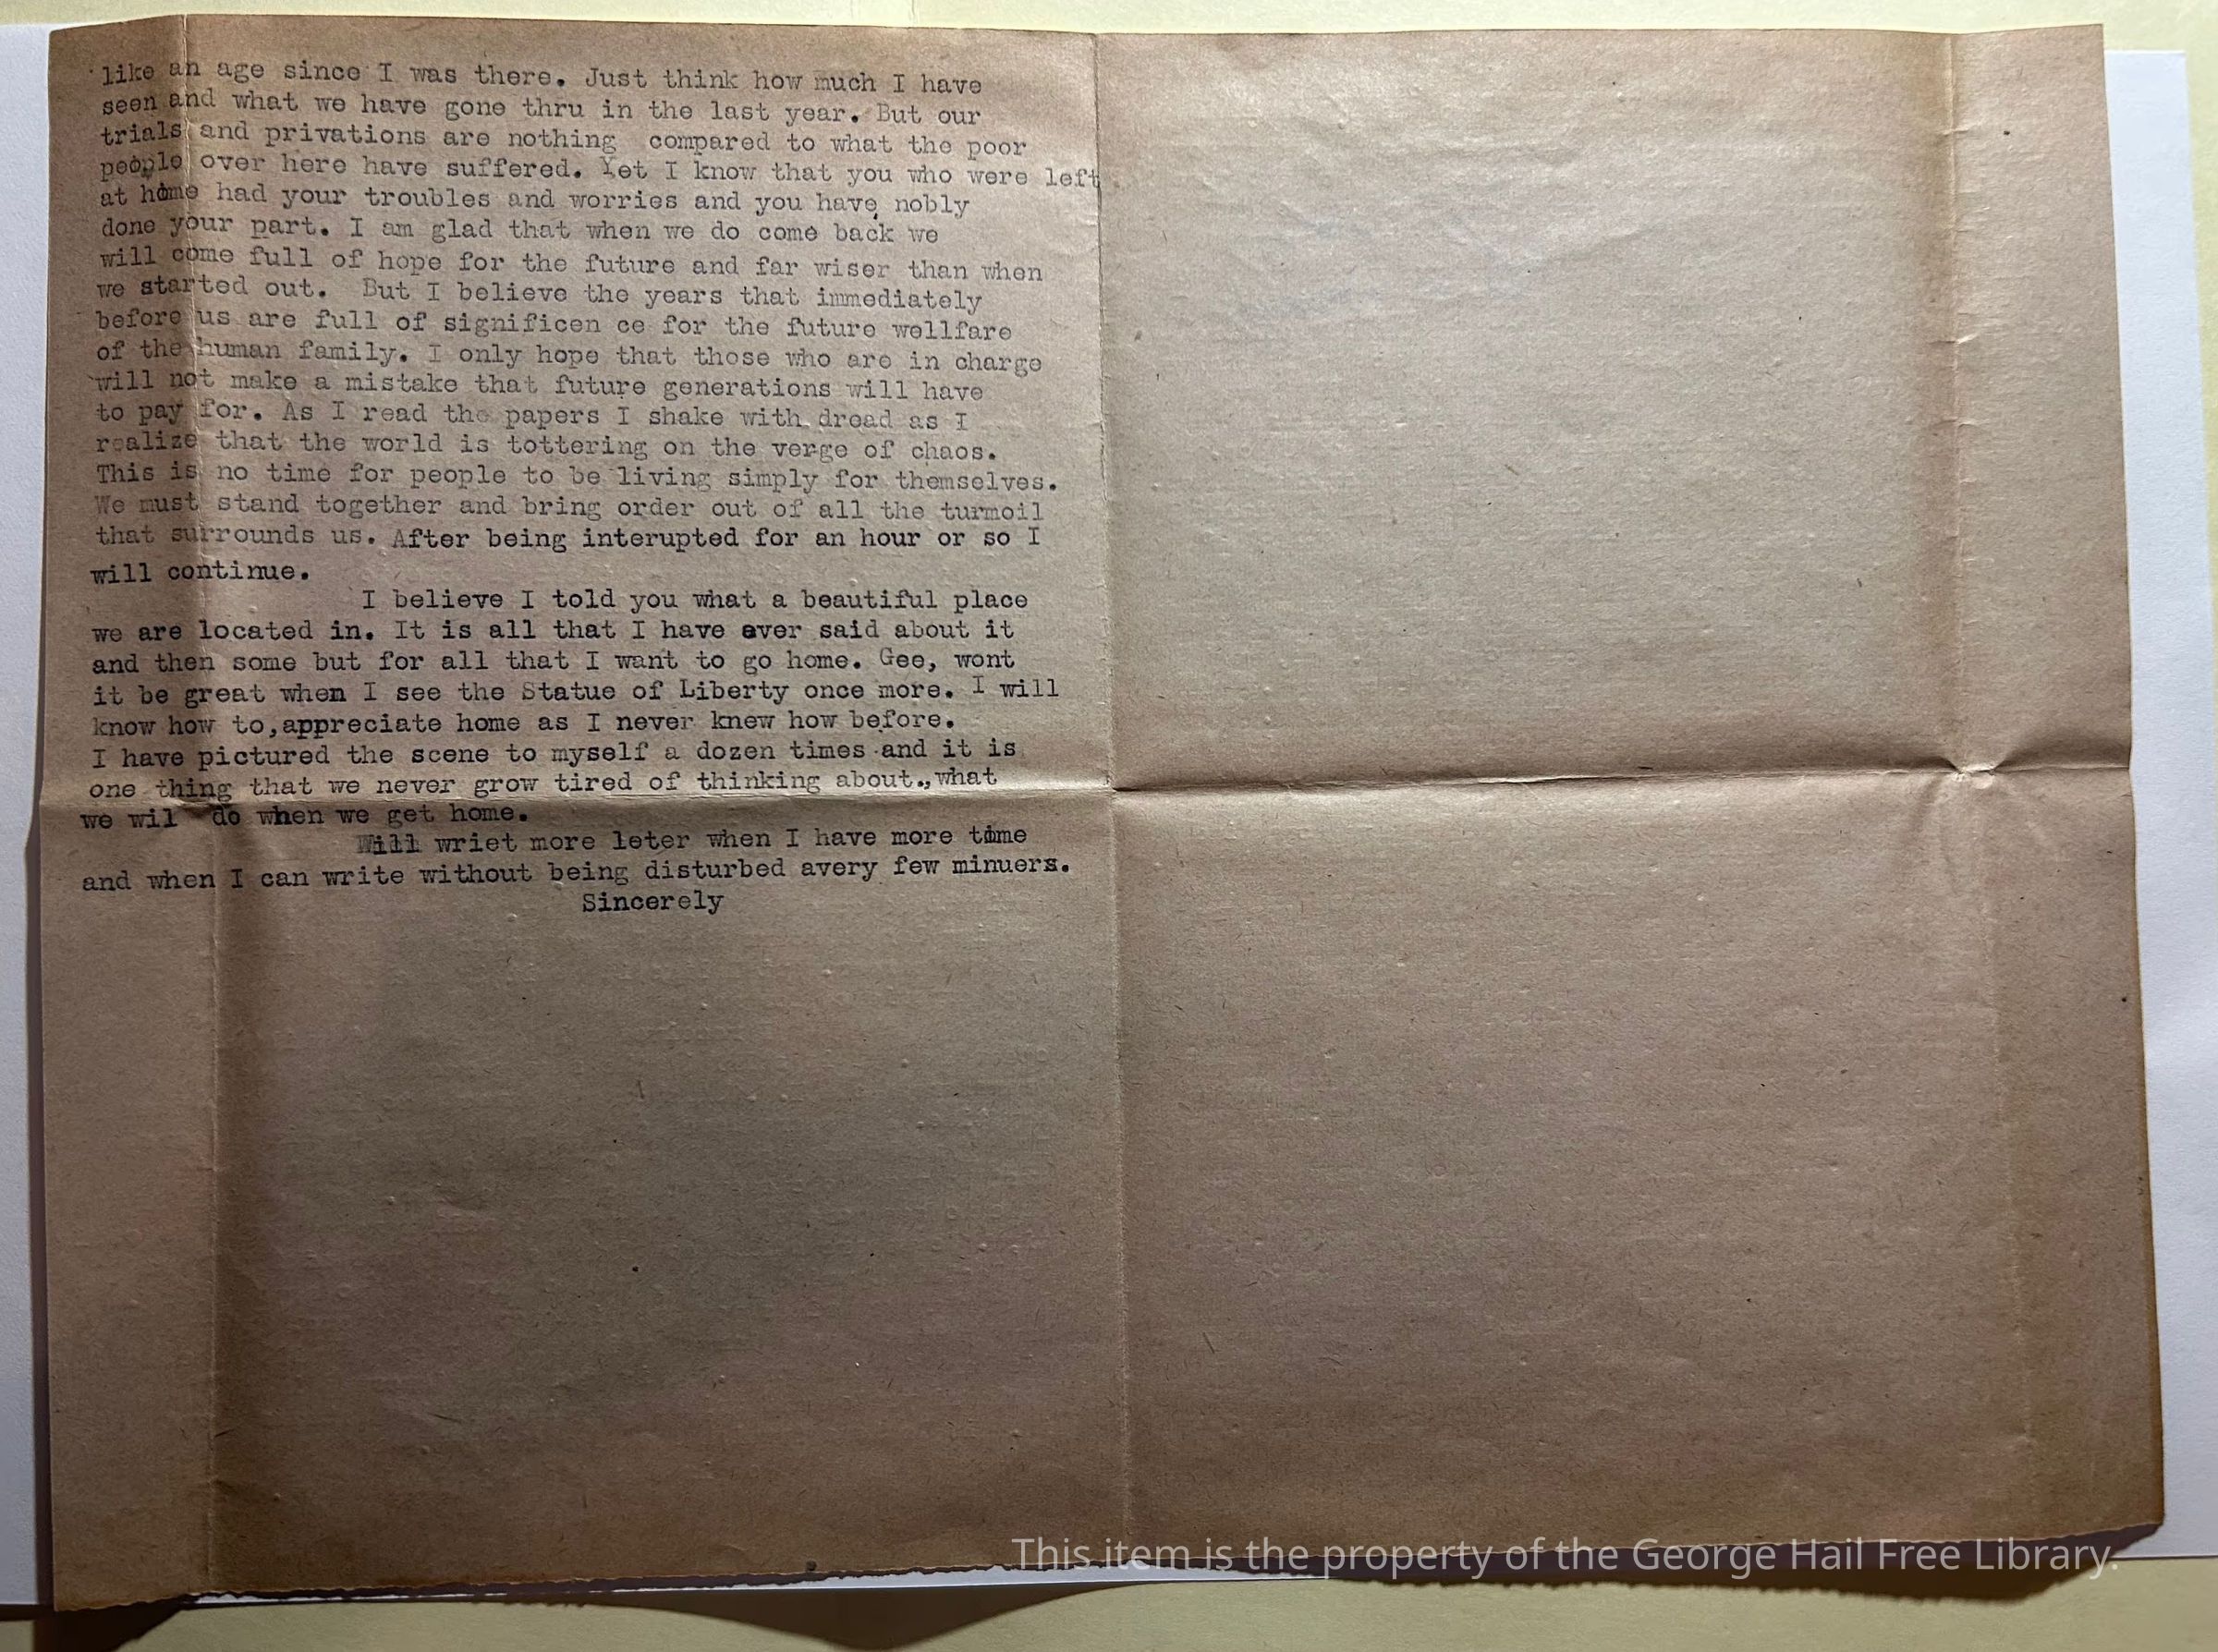 like an age since I was there. Just think how much I have
seen and what we have gone thru in the last year. But our
trials and privations are nothing compared to what the poor
people over here have suffered. Yet I know that you who were left
at home had your troubles and worries and you have, nobly
done your part. I am glad that when we do come back we
will come full of hope for the future and far wiser than when
we started out. But I believe the years that immediately
before us are full of significen ce for the future wellfare
of the human family. I only hope that those who are in charge
will not make a mistake that future generations will have
to pay for. As I read the papers I shake with dread as I
realize that the world is tottering on the verge of chaos.
This is no time for people to be living simply for themselves.
We must stand together and bring order out of all the turmoil
that surrounds us. After being interupted for an hour or so I
will continue.
I believe I told you what a beautiful place
we are located in. It is all that I have ever said about it
and then some but for all that I want to go home. Gee, wont
it be great when I see the Statue of Liberty once more. I will
know how to,appreciate home as I never knew how before.
I have pictured the scene to myself a dozen times and it is
one thing that we never grow tired of thinking about.,what
we wil do when we get home.
Will wriet more leter when I have more time
and when I can write without being disturbed avery few minuers.
Sincerely
This item is the property of the George Hail Free Library.